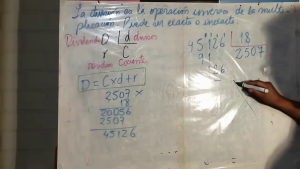 La división es la operación inversa de la multi-
plicación. Puede ser exacta o inexacta.
Dividendo D | d divisor
r C
residuo Cociente
D = C x d + r
2507 x
18
20056
2507
45126
45126 | 18
2507